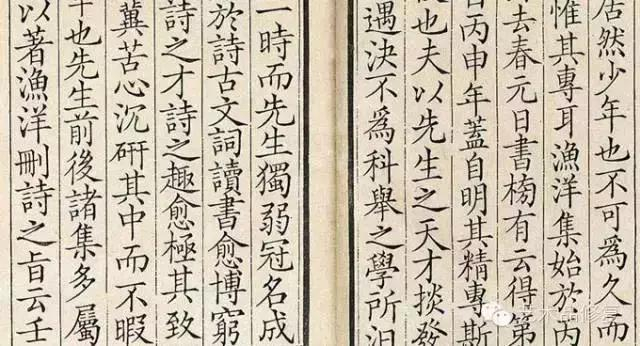 居然少年也不可為久而
惟其專耳漁洋集始於丙
去春元日書榜有云得第
丙申年蓋自明其精專斯
也夫以先生之天才掞發
遇決不為科舉之學所汩
一時而先生獨弱冠名成
於詩古文詞讀書愈博窮
詩之才詩之趣愈極其致
冀苦心沉研其中而不暇
年也先生前後諸集多屬
以著漁洋刪詩之旨云壬
艺术品修复